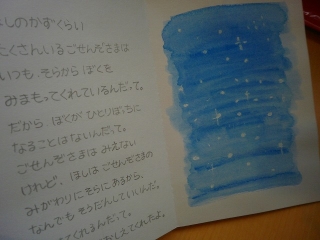 しのかずくらい
たくさんいるごせんぞさまは
いつも、そらから ぼくを
みまもってくれているんだって。
だから ぼくが ひとりぼっちに
なることはないんだって。
ごせんぞさまは みえない
けれど、ほしは ごせんぞさまの
みがわりにそらにあるから、
なんでも そうだんしていいんだ。
てくれるんだって。
おしえてくれたよ。